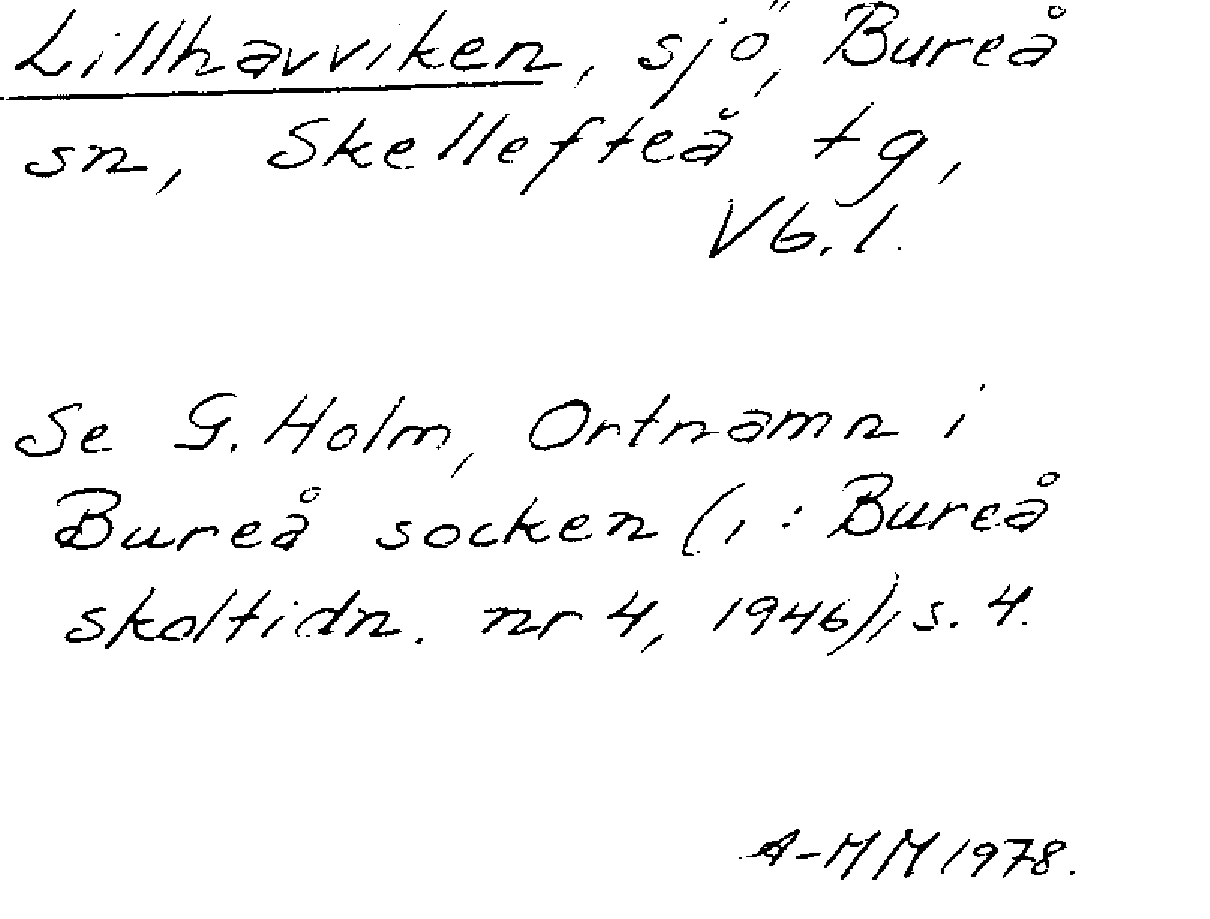 Lillhavviken, sjö, Bureå
sn, Skellefteå tg,
Vb. l.
Se G. Holm, Ortnamn i
Bureå socken (i: Bureå
skoltidn. nr 4, 1946), s. 4.
A-MM 1978.